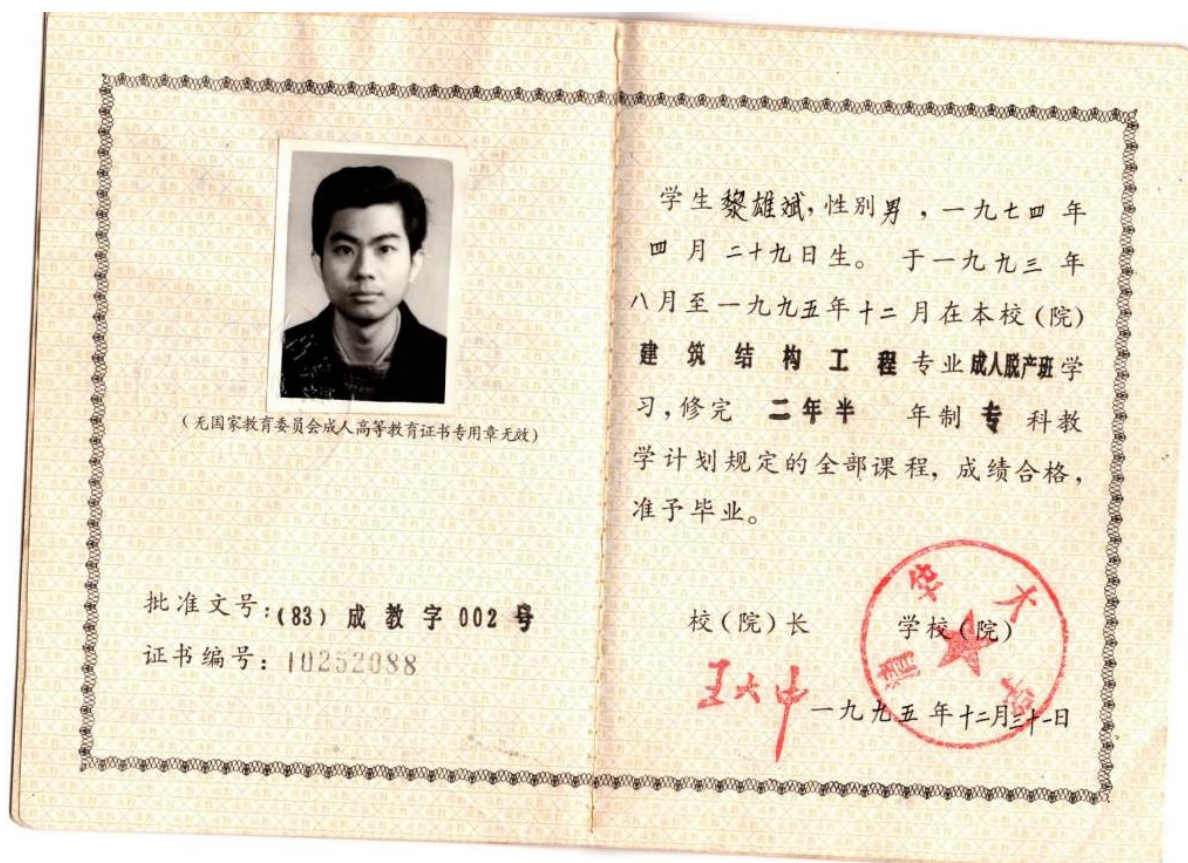 (无国家教育委员会成人高等教育证书专用章无效)
批准文号:(83)成教字002号
证书编号:10252088
学生黎雄斌,性别男,一九七四年
四月二十九日生。于一九九三年
八月至一九九五年十二月在本校(院)
建筑结构工程专业成人脱产班学
习,修完二年半年制专科教
学计划规定的全部课程,成绩合格,
准予毕业。
校(院)长 学校(院)
王大中
清华大学
一九九五年十二月三十一日